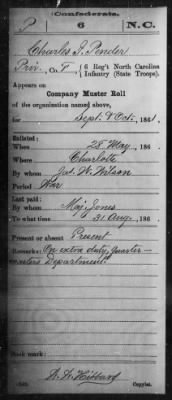 Confederate.
P 6 N.C.
Charles J. Pender
Priv., Co. I, 6 Reg't North Carolina Infantry (State Troops).
Appears on
Company Muster Roll
of the organization named above,
for Sept & Oct, 186 .
Enlisted:
When 28 May, 186 .
Where Charlotte
By whom Jas. W. Wilson
Period War
Last paid:
By whom Maj. Jones
To what time 31 Aug., 186 .
Present or absent Present
Remarks: On extra duty, Quarter-
masters Department.
Book mark:
Copyist.